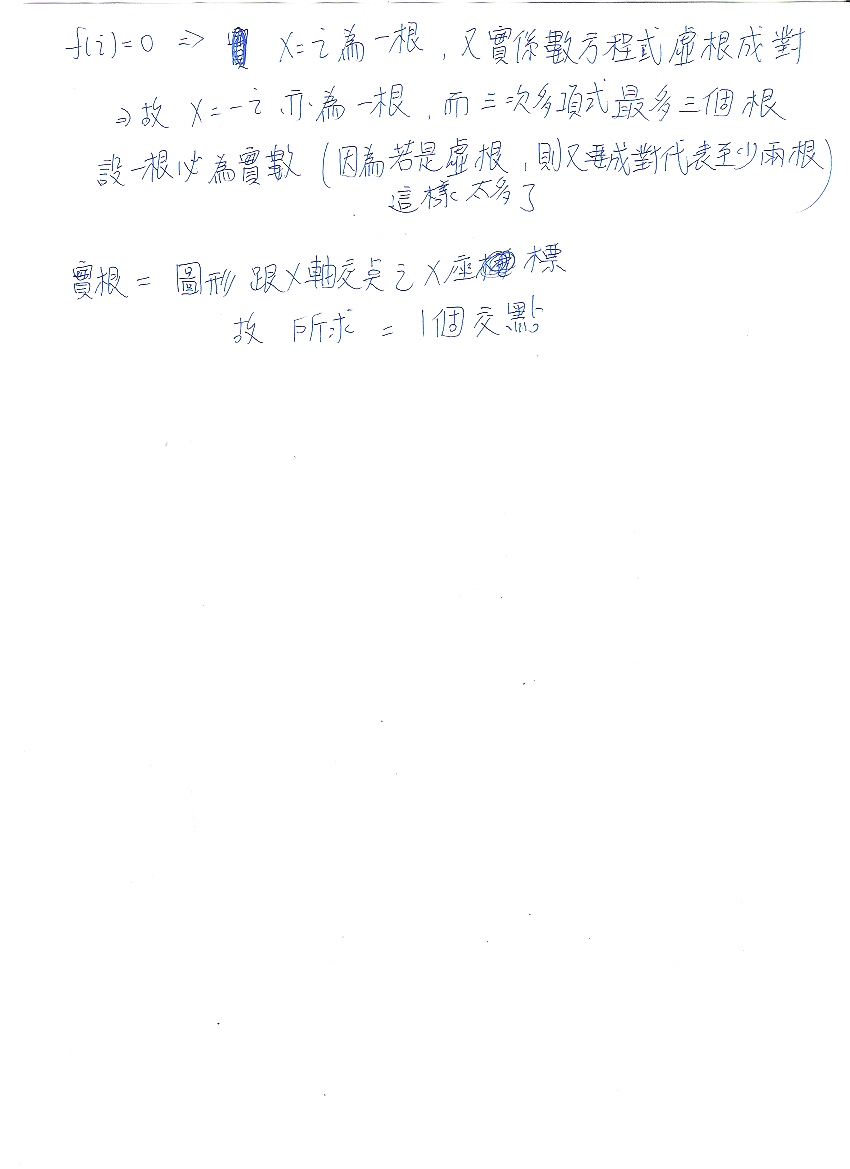 f(i)=0 ⇒ x=i為一根, 又實係數方程式虛根成對
⇒故 x=-i 亦為一根, 而三次多項式最多三個根
設一根必為實數 (因為若是虛根, 則又要成對代表至少兩根)
這樣太多了
實根 = 圖形跟x軸交点之x座標
故 所求 = 1個交點